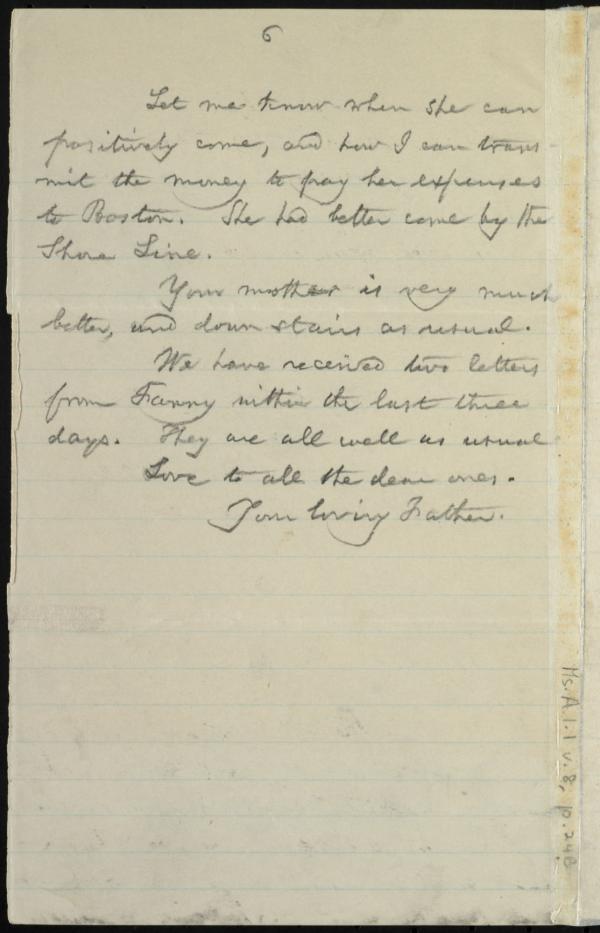 6
Let me know when she can
positively come, and how I can trans-
mit the money to pay her expenses
to Boston. She had better come by the
Shore Line.
Your mother is very much
better, and down stairs as usual.
We have received two letters
from Fanny within the last three
days. They are all well as usual
Love to all the dear ones.
Your loving Father.
Ms. A.1.1 v.8, p.24B